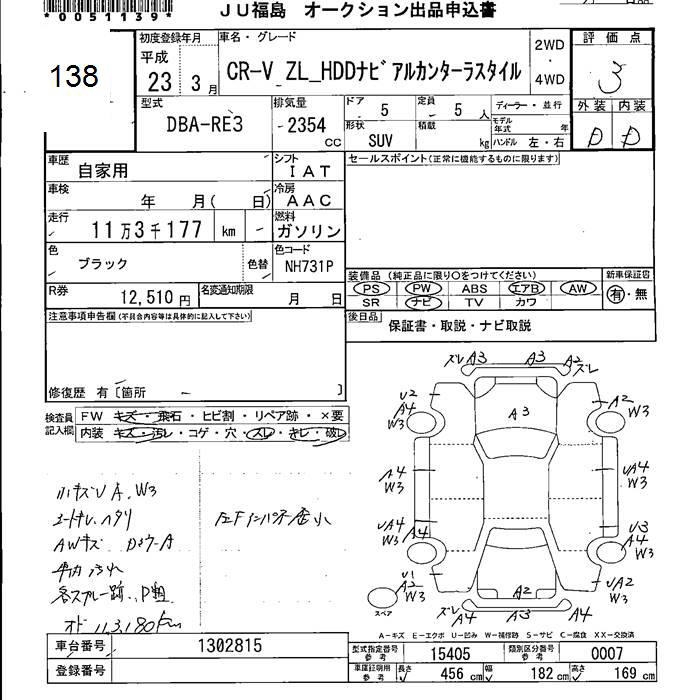 *0051139*
JU福島 オークション出品申込書
138
初度登録年月
平成
23 3月
車名・グレード
CR-V ZL_HDDナビアルカンターラスタイル
2WD
・
4WD
評価点
3
外装 内装
D D
型式
DBA-RE3
排気量
2354
cc
ドア 5
定員 5 人
形状 SUV
積載 kg
ディーラー・並行
モデル年式 年
ハンドル 左・右
車歴
自家用
シフト
IAT
車検
年 月( 日)
冷房
AAC
走行
11万3千177 km
燃料
ガソリン
色
ブラック
色替
色コード
NH731P
R券
12,510円
名変通知期限
月 日
セールスポイント(正常に機能するものに限ります)
装備品 (純正品に限り○をつけてください)
PS PW ABS エアB AW
SR ナビ TV カワ
新車保証書
有・無
後日品
保証書・取説・ナビ取説
注意事項申告欄(不具合内容等は具体的に記入して下さい)
修復歴 有〔箇所 〕
検査員
記入欄
FW キズ・飛石・ヒビ割・リペア跡・×要
内装 キズ・汚レ・コゲ・穴・スレ・きレ・破レ
小キズU A、W3
AWキズ
オド113,180km
ズレ A3 A3 A2 ズレ
U2
A4
W3
A3
A2
W3
A4
W3
UA4
W3
UA4
W3
U3
A4
W3
U1
A2
W3
A2
UA2
W3
スペア
ズレ A4 A3 A4
A-キズ E-エクボ U-凹み W-補修跡 S-サビ C-腐食 XX-交換済
車台番号
1302815
登録番号
型式指定番号
参考
15405
類別区分番号
参考
0007
車庫証明用
参考
長さ 456 cm
幅 182 cm
高さ 169 cm